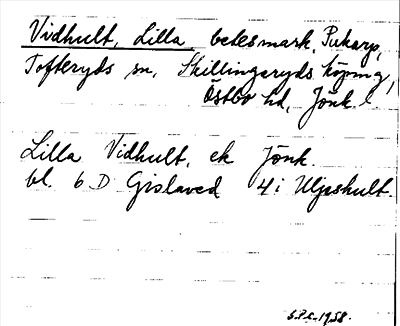 Vidhult, Lilla betesmark, Pukarp,
Tofteryds sn, Skillingaryds köping,
Östbo hd, Jönk. l.
Lilla Vidhult, ek Jönk.
bl. 6 D Gislaved 4 i Uljeshult.
1958.